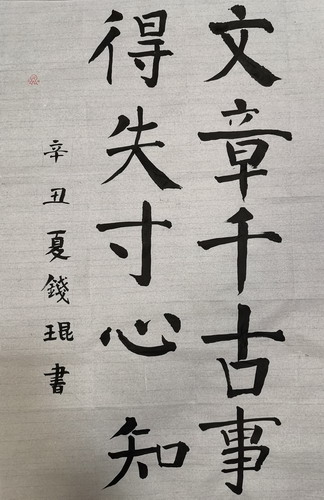 文章千古事
得失寸心知
辛丑夏錢琨書